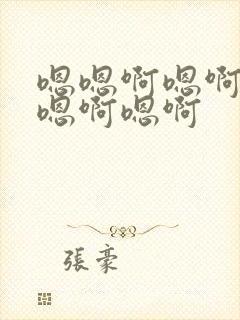 嗯嗯啊嗯啊
嗯啊嗯啊
張豪